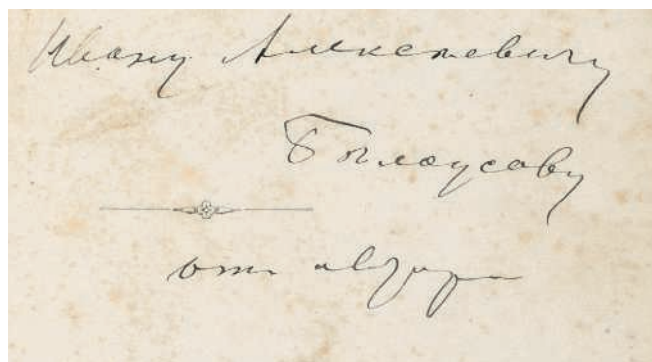 Ивану Алексеевичу
Белоусову
от автора